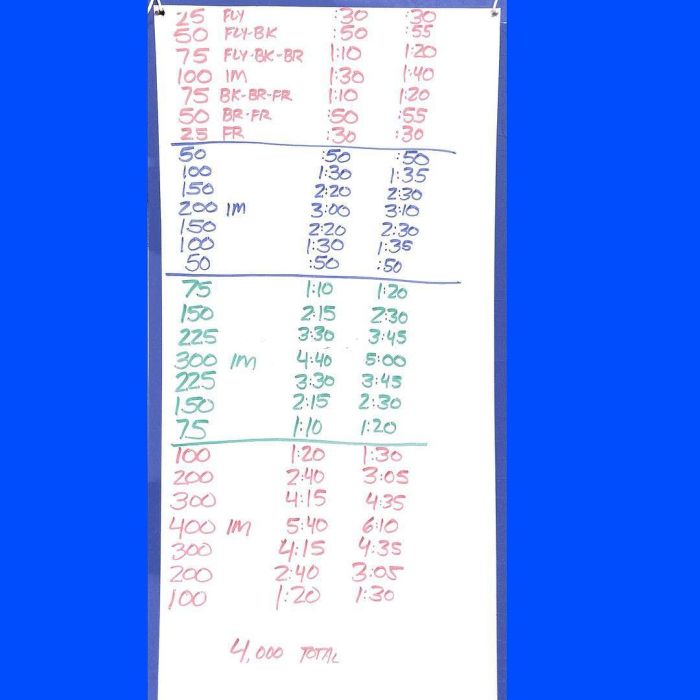 25 FLY :30 :30
50 FLY-BK :50 :55
75 FLY-BK-BR 1:10 1:20
100 IM 1:30 1:40
75 BK-BR-FR 1:10 1:20
50 BR-FR :50 :55
25 FR :30 :30
50 :50 :50
100 1:30 1:35
150 2:20 2:30
200 IM 3:00 3:10
150 2:20 2:30
100 1:30 1:35
50 :50 :50
75 1:10 1:20
150 2:15 2:30
225 3:30 3:45
300 IM 4:40 5:00
225 3:30 3:45
150 2:15 2:30
75 1:10 1:20
100 1:20 1:30
200 2:40 3:05
300 4:15 4:35
400 IM 5:40 6:10
300 4:15 4:35
200 2:40 3:05
100 1:20 1:30
4,000 TOTAL